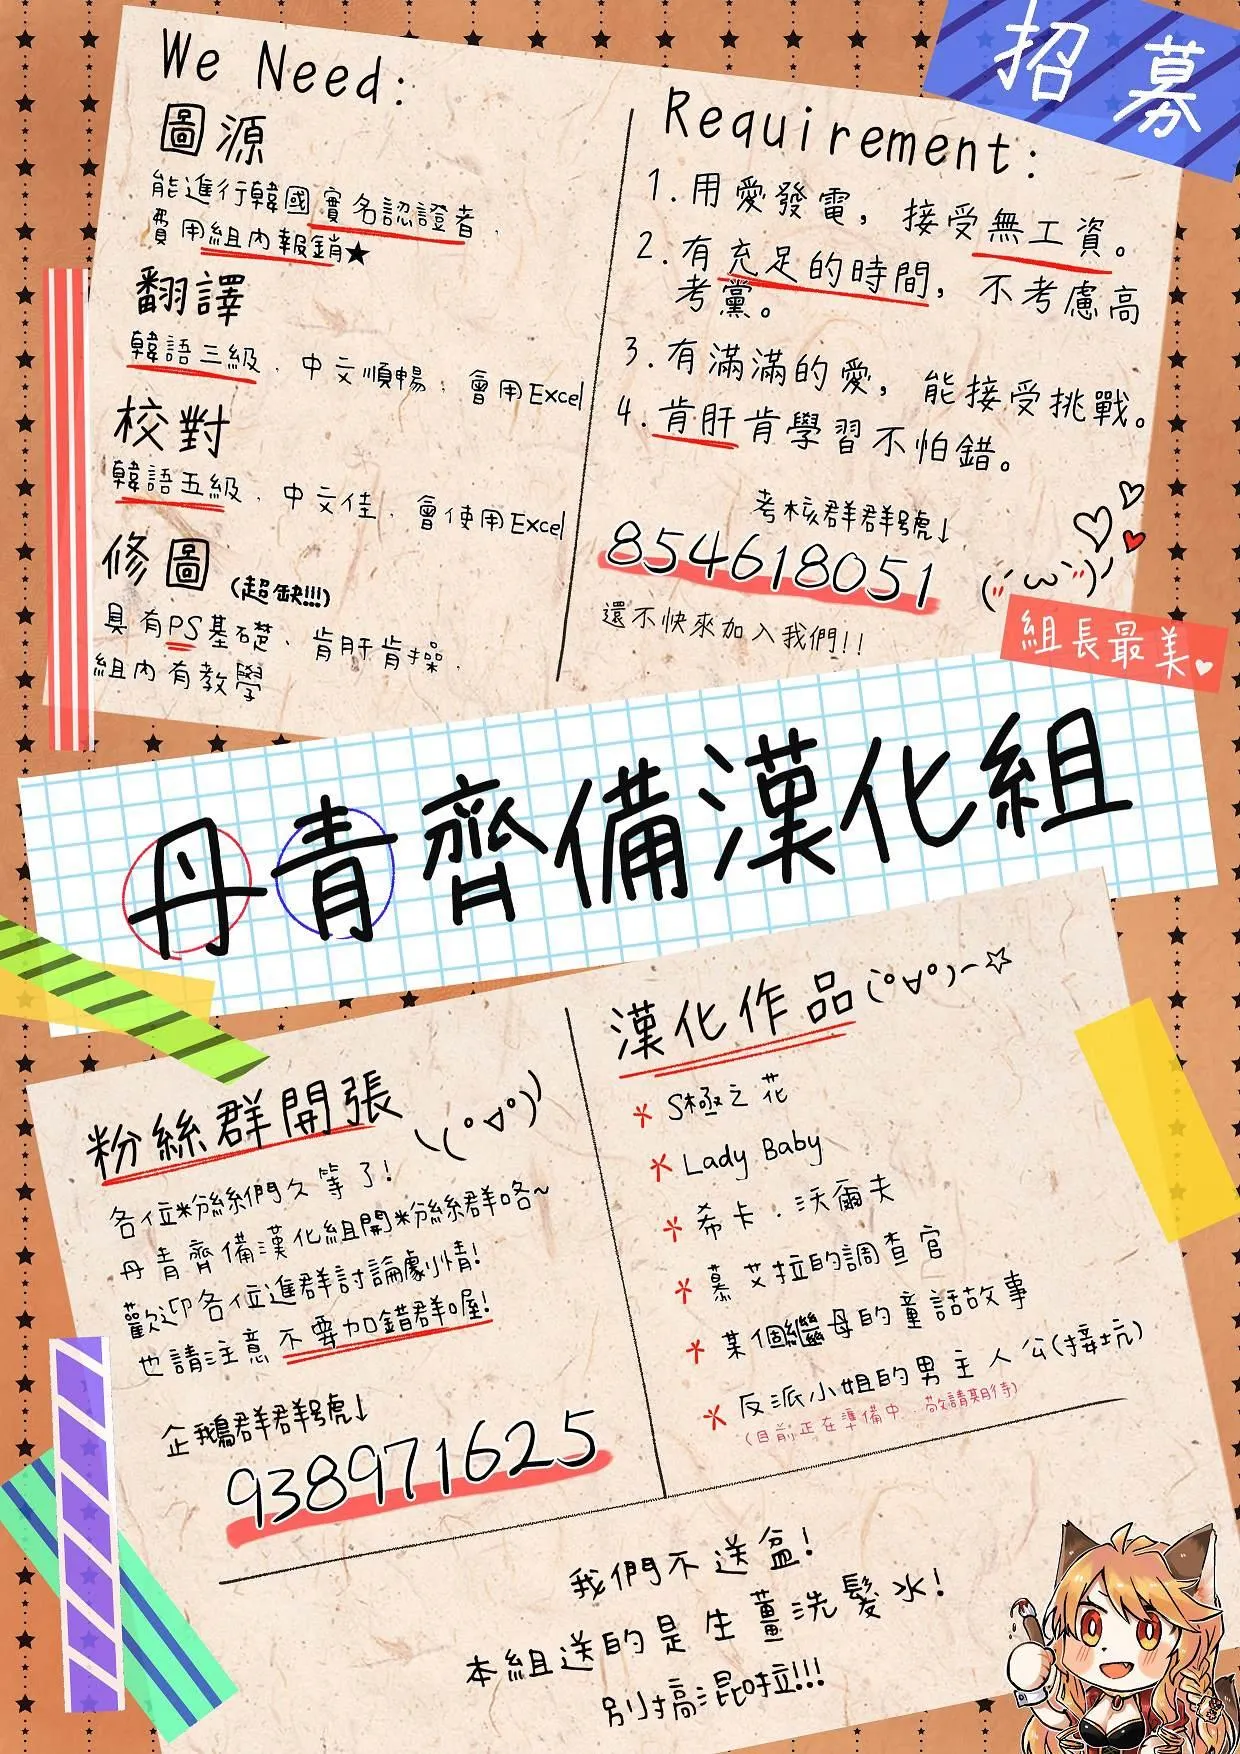 招募
We Need:
圖源
能進行韓國實名認證者、
費用組內報銷★
翻譯
韓語三級、中文順暢、會用Excel
校對
韓語五級、中文佳、會使用Excel
修圖(超缺!!!)
具有PS基礎、肯肝肯操、
組內有教學
Requirement:
1.用愛發電，接受無工資。
2.有充足的時間，不考慮高
考黨。
3.有滿滿的愛，能接受挑戰。
4.肯肝肯學習不怕錯。
考核群群號↓
854618051
還不快來加入我們!!
組長最美
丹青齊備漢化組
粉絲群開張
各位粉絲們久等了!
丹青齊備漢化組開粉絲群咯~
歡迎各位進群討論劇情!
也請注意不要加錯群喔!
企鵝群群號↓
938971625
漢化作品
* S極之花
* Lady Baby
* 希卡·沃爾夫
* 慕艾拉的調查官
* 某個繼母的童話故事
* 反派小姐的男主人公(接坑)
(目前正在準備中、敬請期待)
我們不送盆!
本組送的是生薑洗髮水!
別搞混啦!!!